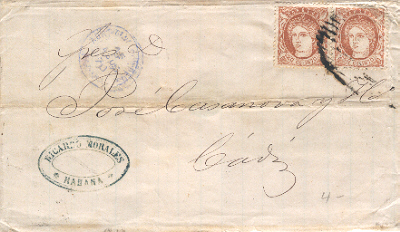 Sres. D.
José Casanova y Ca
Cádiz
RICARDO MORALES
HABANA
4-